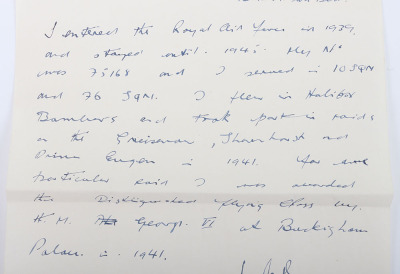 I entered the Royal Air Force in 1939,
and stayed until 1945. My No
was 75168 and I served in 10 SQN
and 76 SQN. I flew in Halifax
Bombers and took part in raids
on the Gneisenau, Sharnhorst and
Prinz Eugen in 1941. For one
particular raid I was awarded
the Distinguished Flying Cross by
H.M. George VI at Buckingham
Palace in 1941.